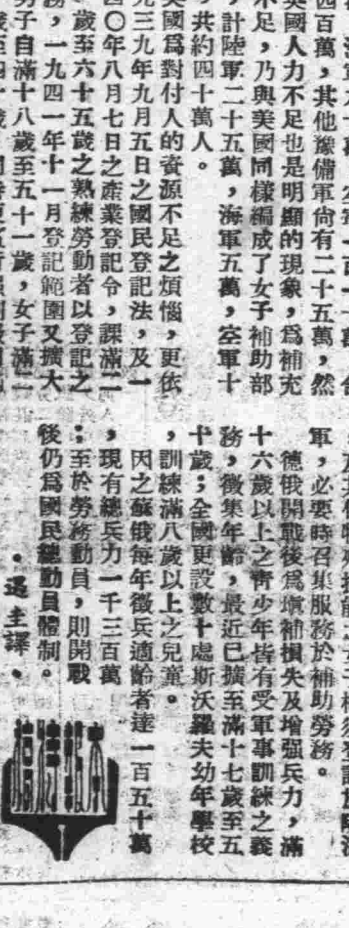 四百萬，其他豫備軍尚有二十五萬，然
英國人力不足也是明顯的現象，爲補充
不足，乃與美國同樣編成了女子補助部
，計陸軍二十五萬，海軍五萬，空軍十
，共約四十萬人。
英國爲對付人的資源不足之煩惱，更依
九三九年九月五日之國民登記法，及一
四〇年八月七日之產業登記令，課滿二
歲至六十五歲之熟練勞動者以登記之
務，一九四一年十一月登記範圍又擴大
男子自滿十八歲至五十一歲，女子滿二
軍，必要時召集服務於補助勞務。
德俄開戰後爲塡補損失及增强兵力，滿
十六歲以上之靑少年皆有受軍事訓練之義
務，徵集年齡，最近已擴至滿十七歲至五
十歲；全國更設數十處斯沃羅夫幼年學校
，訓練滿八歲以上之兒童。
因之蘇俄每年徵兵適齡者達一百五十萬
，現有總兵力一千三百萬
；至於勞務動員，則開戰
後仍爲國民總動員體制。
主譯